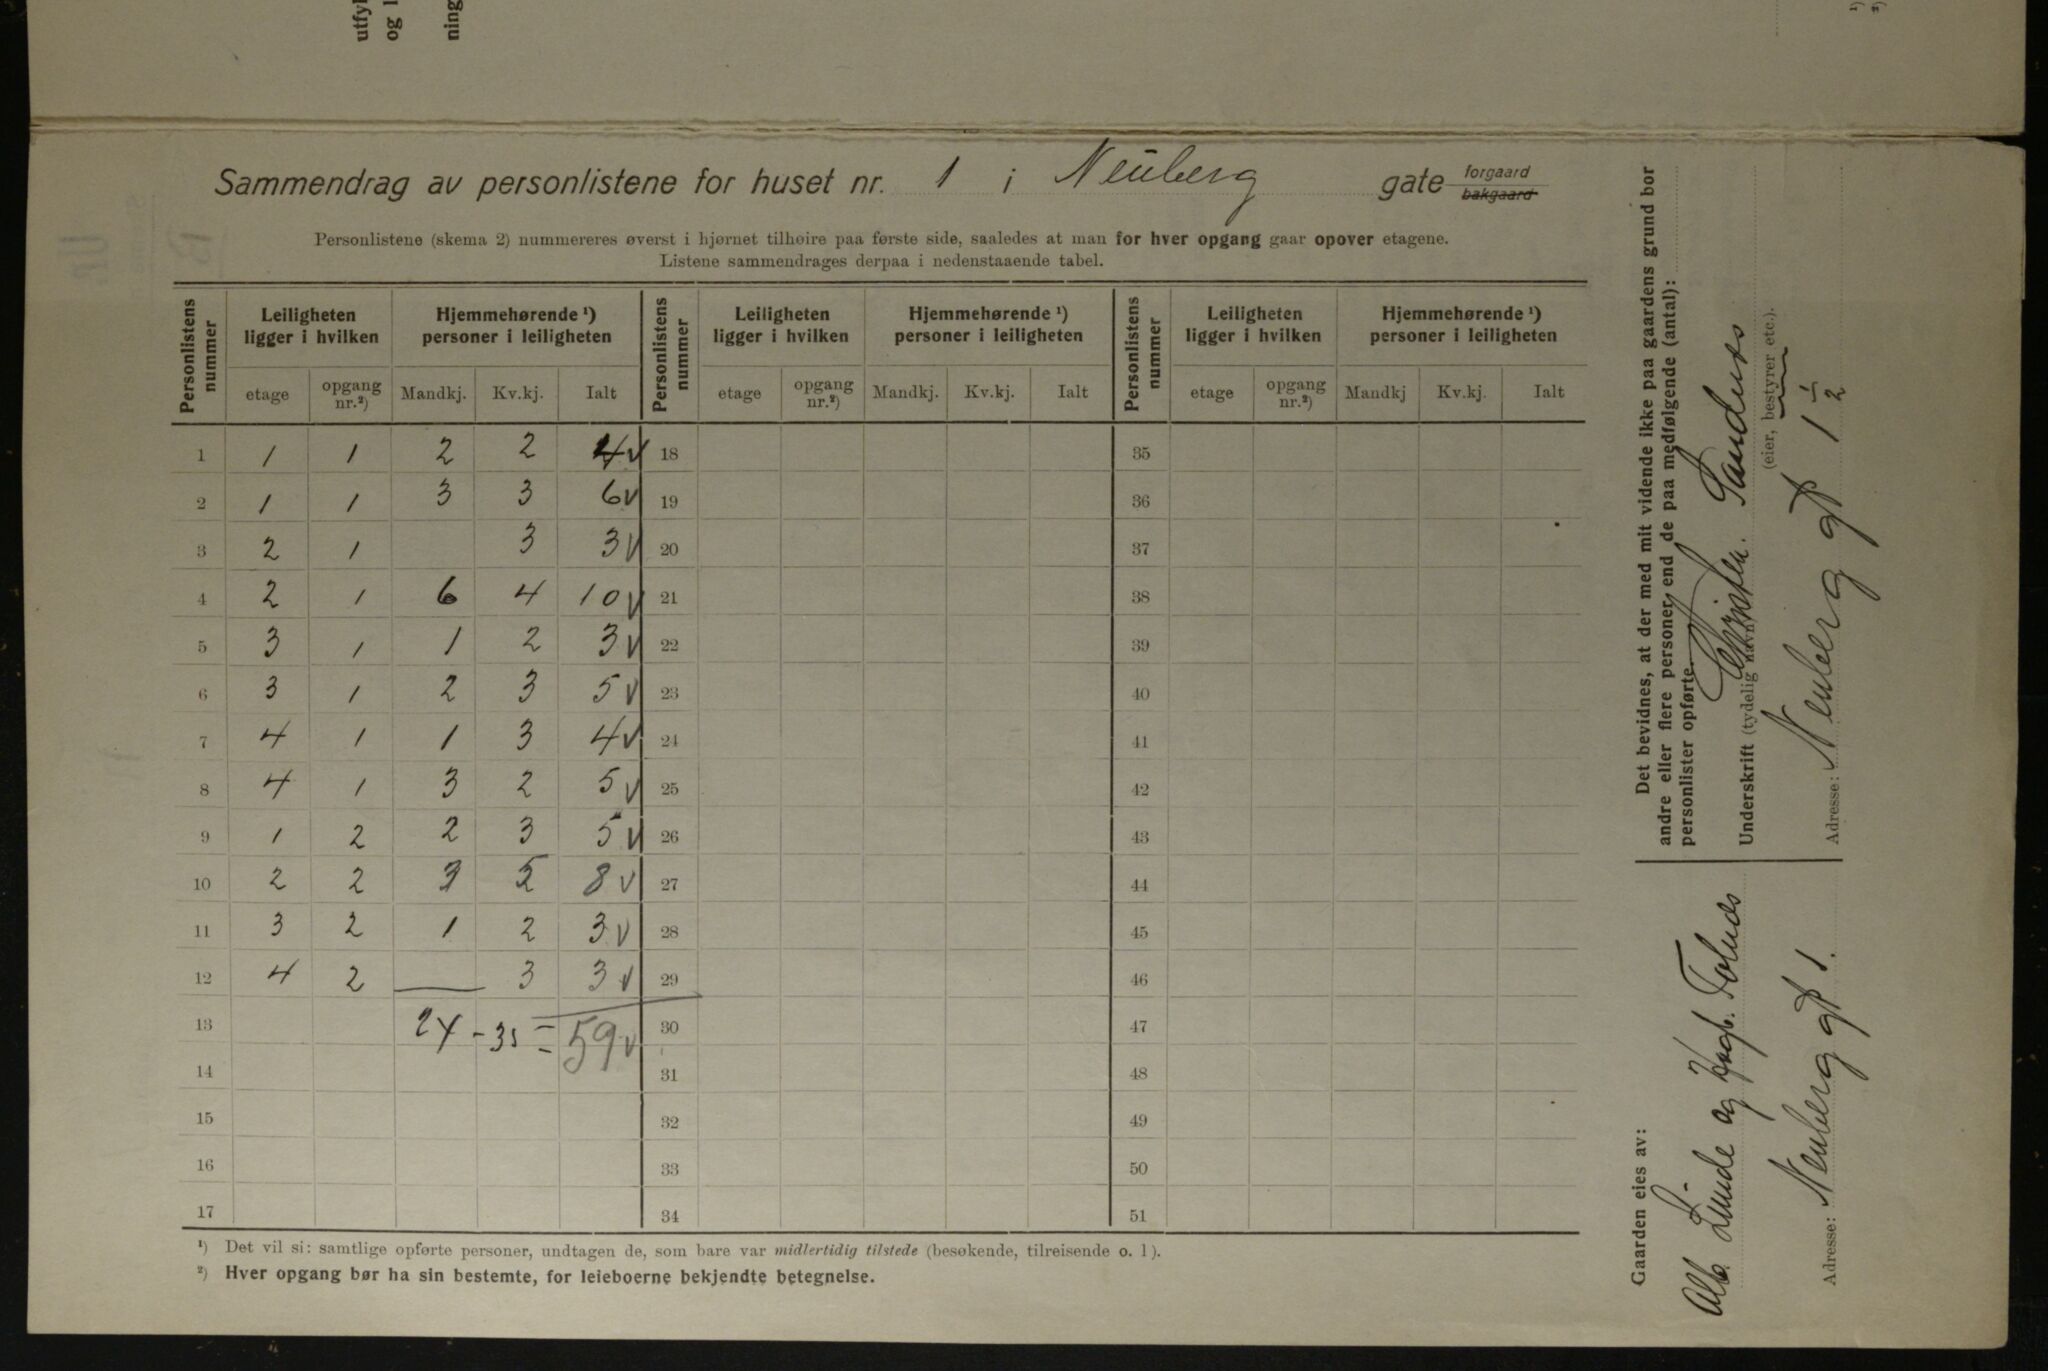 utfyl
og l
ning
¹)
²)
Sammendrag av personlistene for huset nr. 1 i Neuberg gate forgaard
bakgaard
Personlistene (skema 2) nummereres øverst i hjørnet tilhøire paa første side, saaledes at man for hver opgang gaar opover etagene.
Listene sammendrages derpaa i nedenstaaende tabel.
Personlistens nummer | Leiligheten ligger i hvilken | Hjemmehørende ¹) personer i leiligheten | Personlistens nummer | Leiligheten ligger i hvilken | Hjemmehørende ¹) personer i leiligheten | Personlistens nummer | Leiligheten ligger i hvilken | Hjemmehørende ¹) personer i leiligheten
etage | opgang nr.²) | Mandkj. | Kv.kj. | Ialt | etage | opgang nr.²) | Mandkj. | Kv.kj. | Ialt | etage | opgang nr.²) | Mandkj | Kv.kj. | Ialt
1 1 1 2 2 4 v 18 35
2 1 1 3 3 6 v 19 36
3 2 1 3 3 v 20 37
4 2 1 6 4 10 v 21 38
5 3 1 1 2 3 v 22 39
6 3 1 2 3 5 v 23 40
7 4 1 1 3 4 v 24 41
8 4 1 3 2 5 v 25 42
9 1 2 2 3 5 v 26 43
10 2 2 3 5 8 v 27 44
11 3 2 1 2 3 v 28 45
12 4 2 — 3 3 v 29 46
13 24 - 35 = 59 v 30 47
14 31 48
15 32 49
16 33 50
17 34 51
¹) Det vil si: samtlige opførte personer, undtagen de, som bare var midlertidig tilstede (besøkende, tilreisende o. l).
²) Hver opgang bør ha sin bestemte, for leieboerne bekjendte betegnelse.
Det bevidnes, at der med mit vidende ikke paa gaardens grund bor
andre eller flere personer end de paa medfølgende (antal):
personlister opførte.
Underskrift (tydelig navn): Christen. Sandnes
(eier, bestyrer etc.).
Adresse: Neuberg gt 1 1/2
Gaarden eies av:
Alb. Lunde og Hagb. Tolnæs
Adresse: Neuberg gt 1.